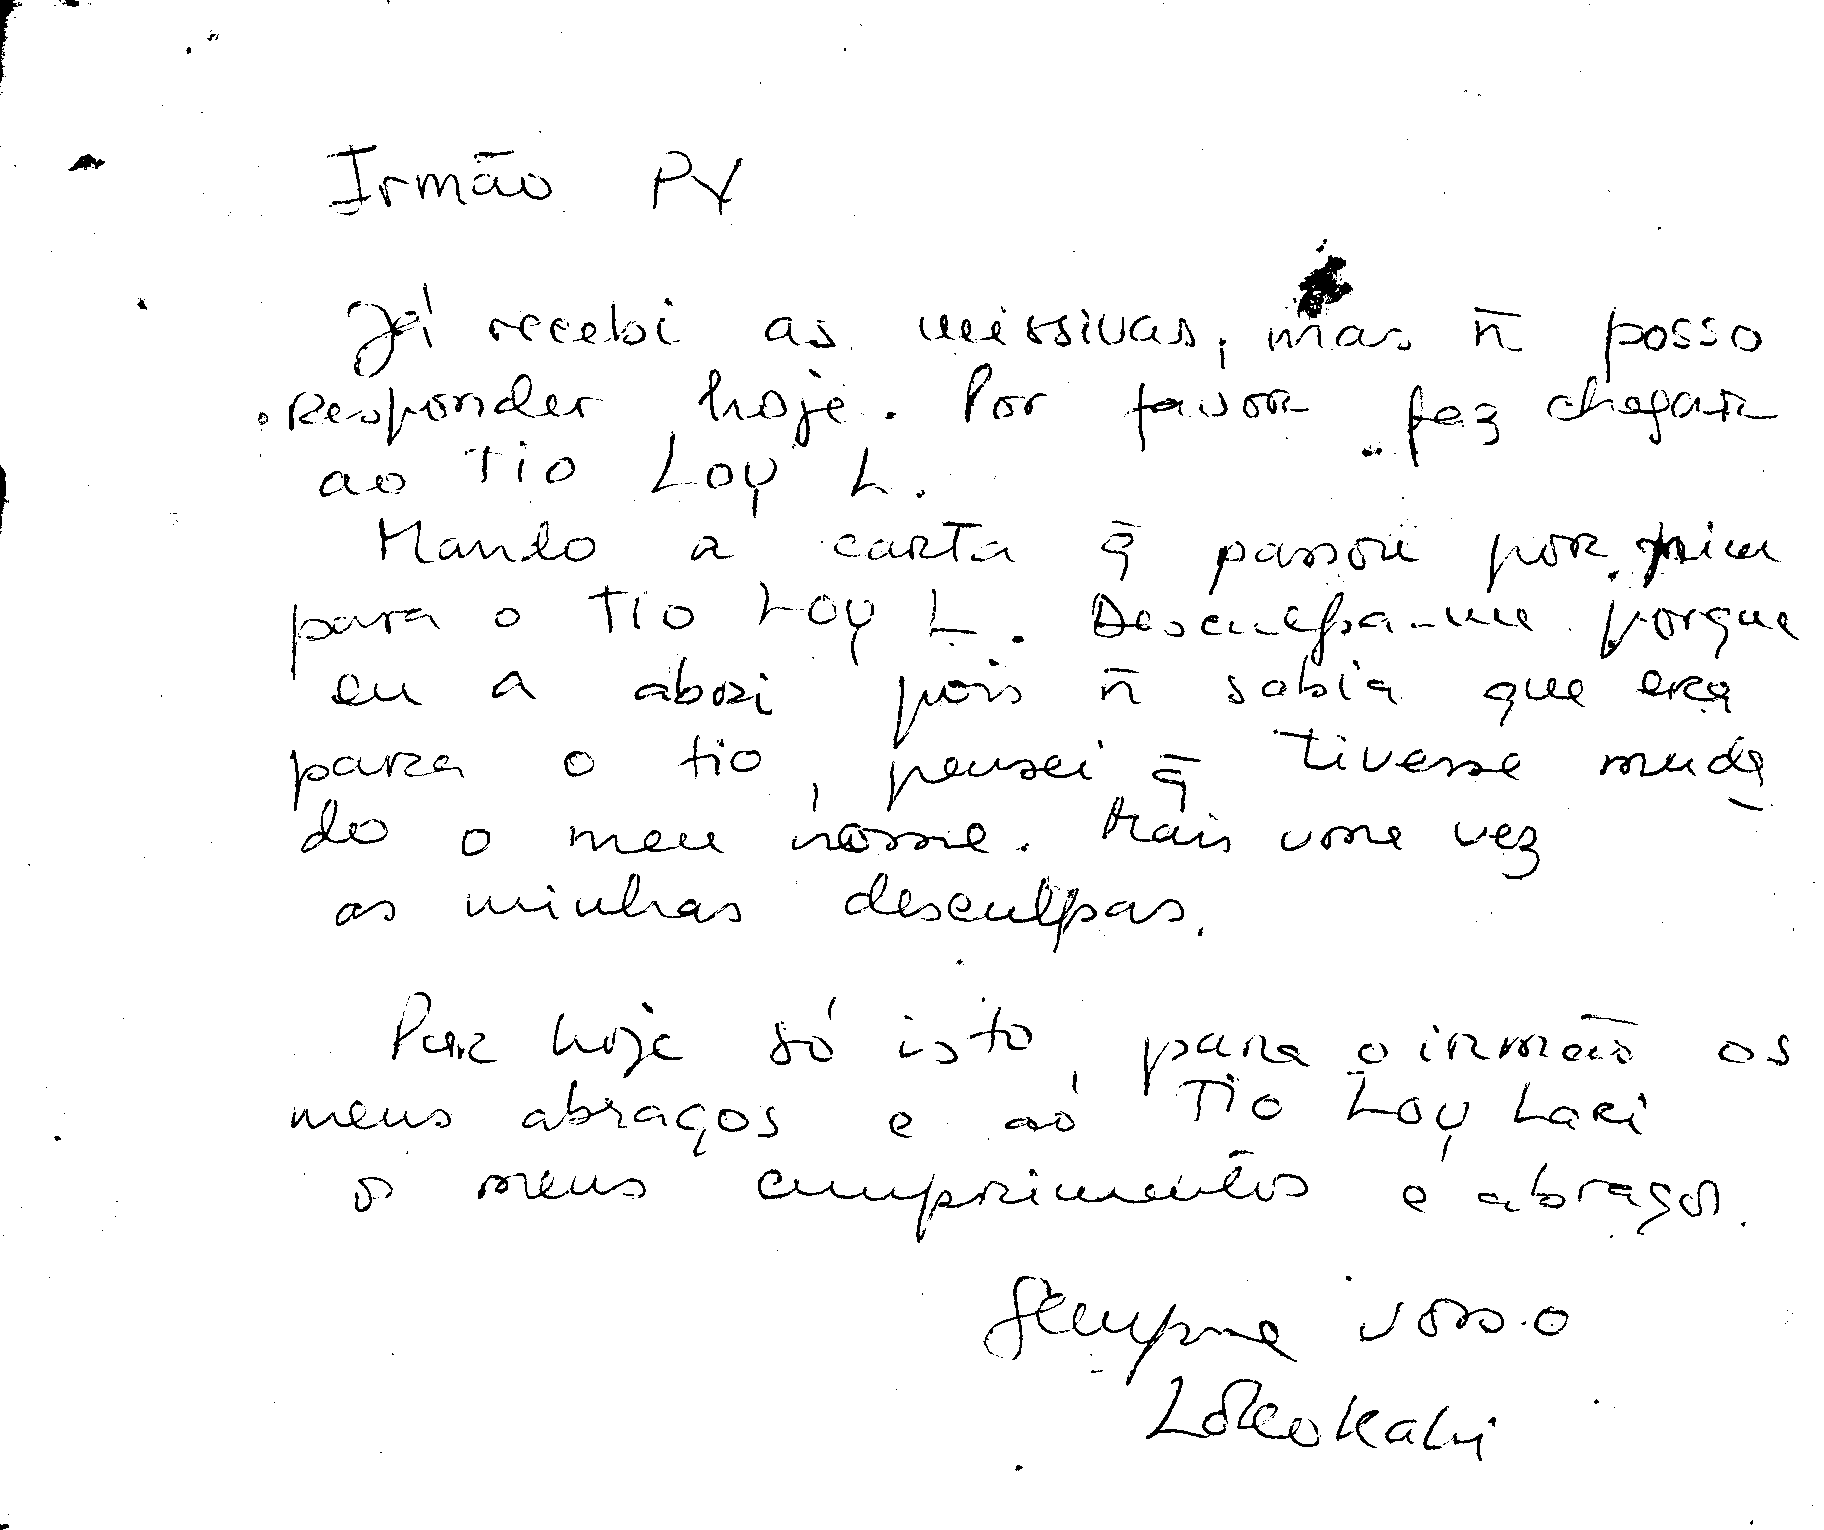 Irmão PY
Já recebi as missivas, mas ñ posso
Responder hoje. Por favor faz chegar
ao Tio Loy L.
Mando a carta q̄ passou por mim
para o Tio Loy L. Desculpa-me porque
eu a abri pois ñ sabia que era
para o tio, pensei q̄ tivesse muda
do o meu nome. Mais uma vez
as minhas desculpas.
Par hoje só isto, para o irmão os
meus abraços e ao Tio Loy Lari
os meus cumprimentos e abraços.
Sempre vosso